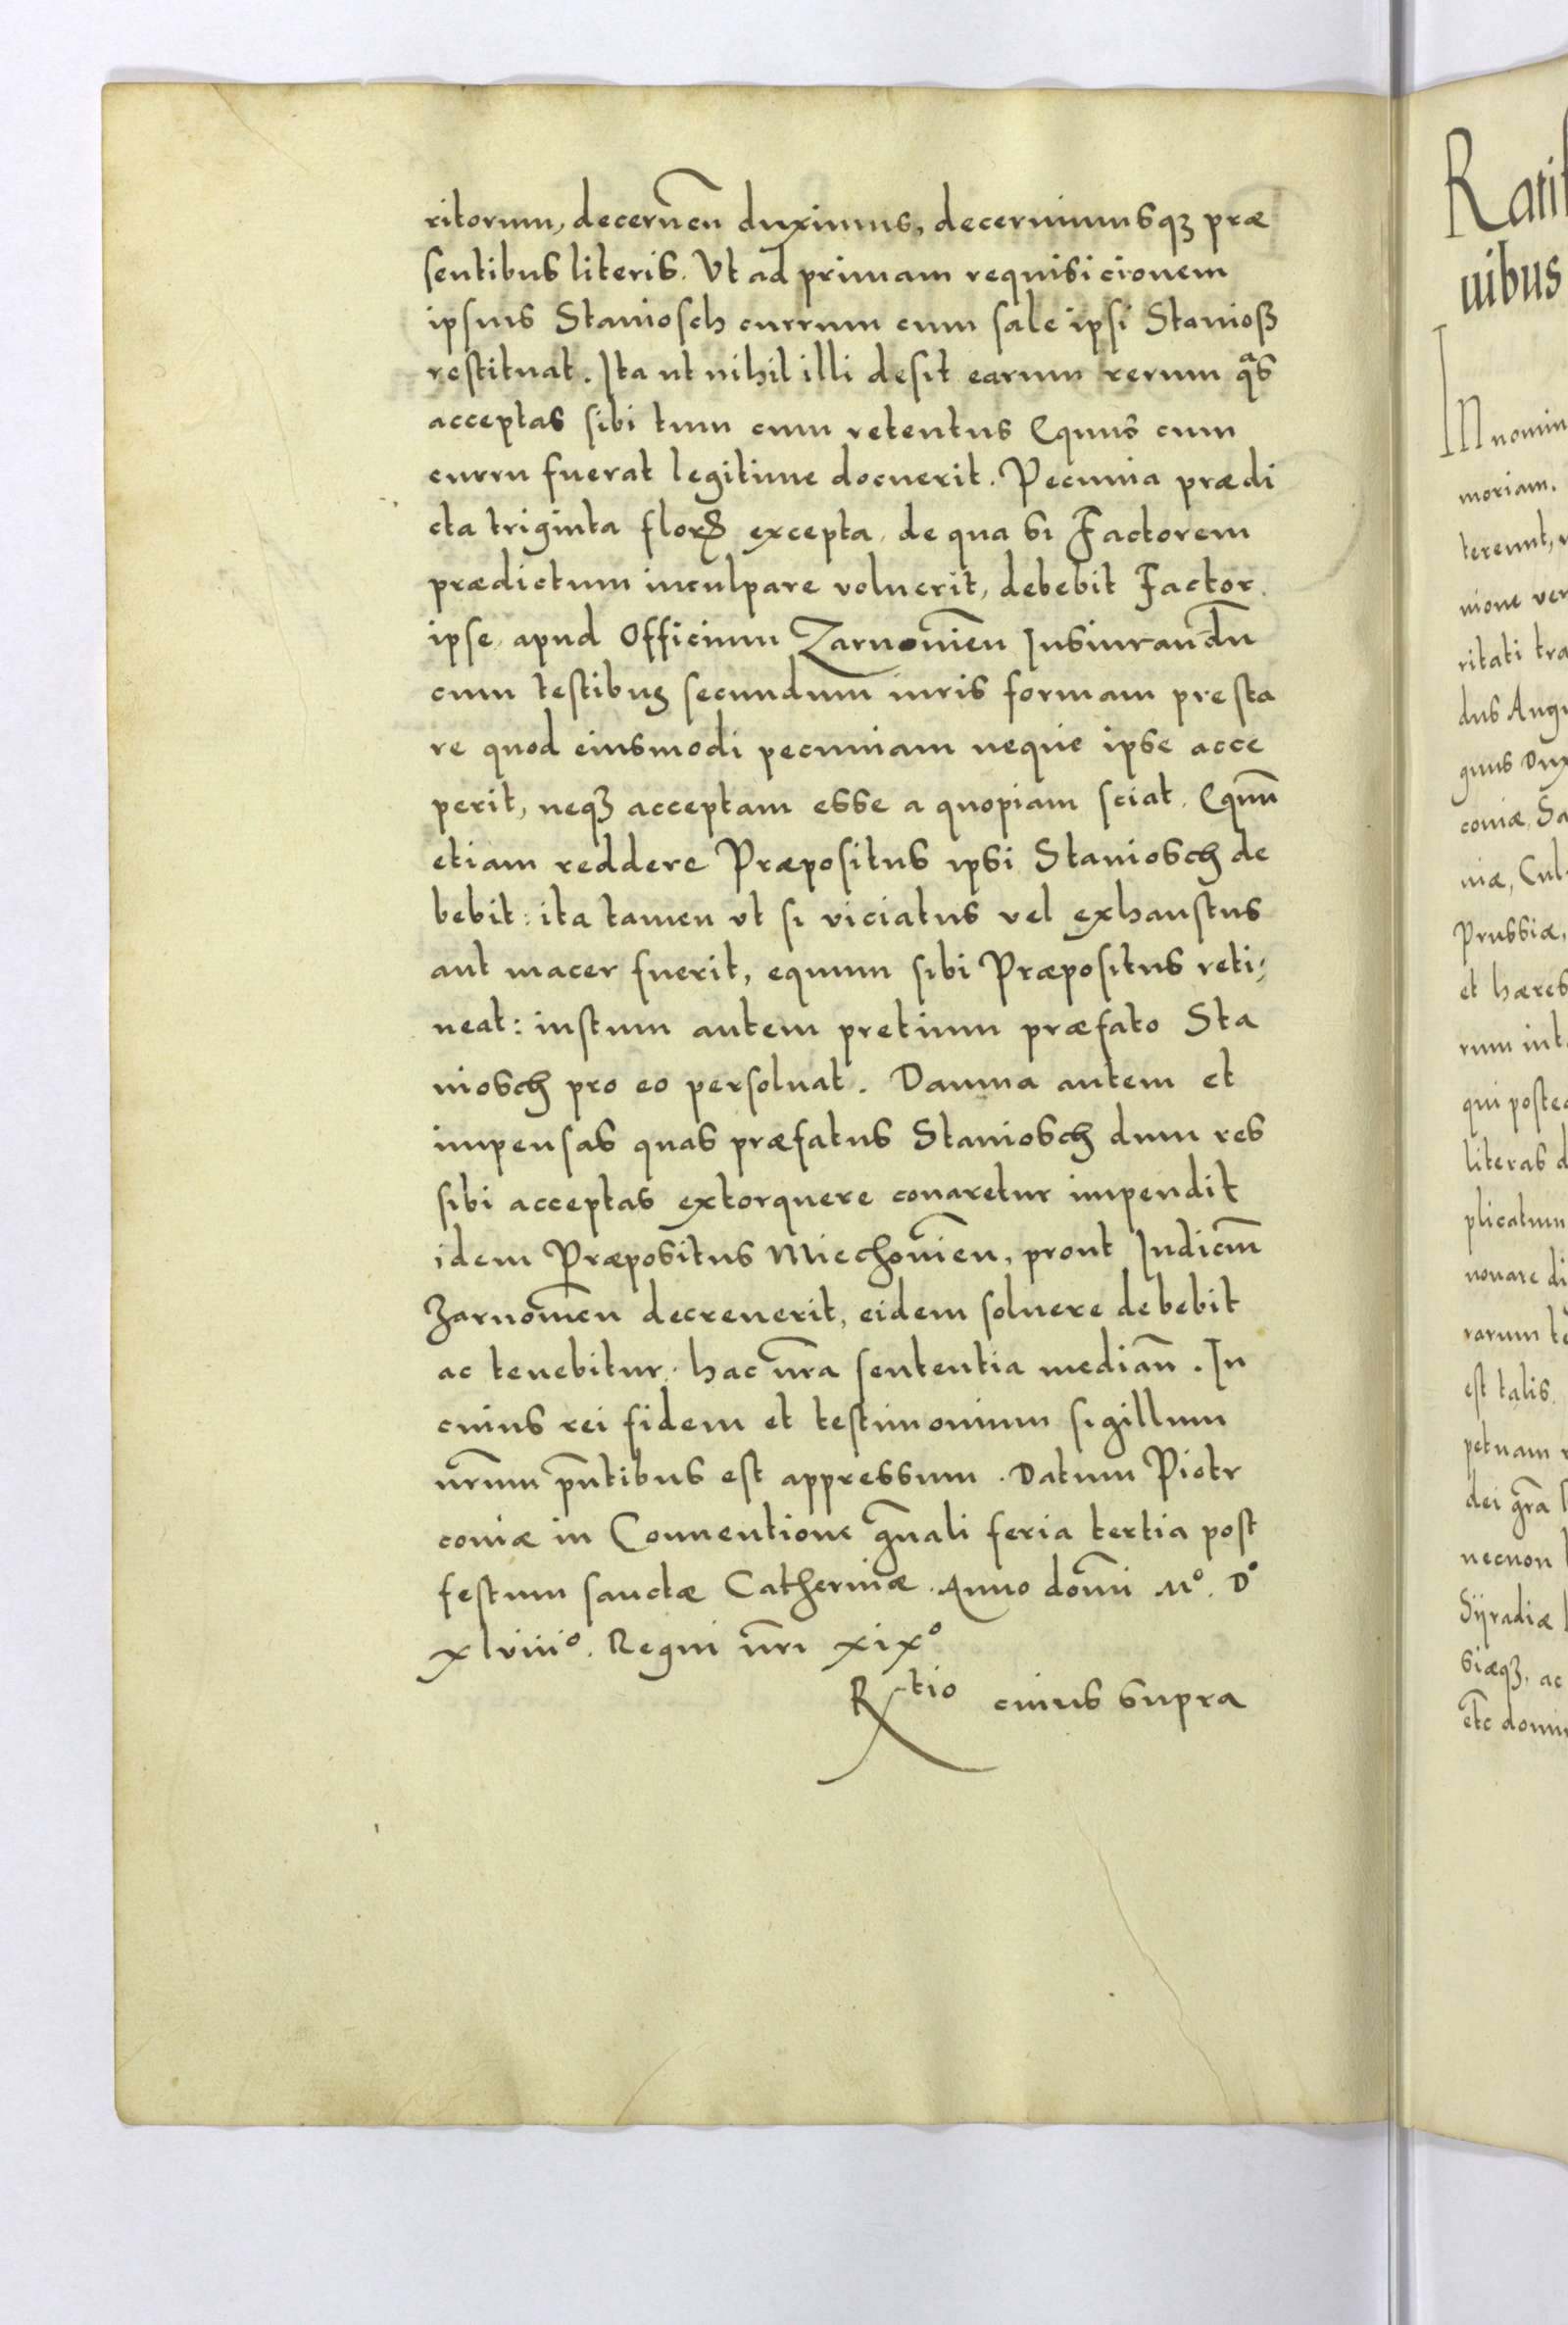 ritorum, decernen̄ duximus, decernimusqꝫ præ
sentibus literis. Vt ad primam requisicionem
ipsius Staniosch currum cum sale ipsi Stanioß
restituat. Ita ut nihil illi desit earum rerum qᵃs
acceptas sibi tum cum retentus Equus cum
curru fuerat legitime docuerit. Pecunia prædi
cta triginta flor excepta, de qua si Factorem
prædictum inculpare voluerit, debebit Factor
ipse apud Officium Zarnouien̄ Iusiurandū
cum testibus secundum iuris formam presta
re quod eiusmodi pecuniam neque ipse acce
perit, neqꝫ acceptam esse a quopiam sciat. Equū
etiam reddere Præpositus ipsi Staniosch de
bebit: ita tamen vt si viciatus vel exhaustus
aut macer fuerit, equum sibi Præpositus reti
neat: iustum autem pretium præfato Sta
niosch pro eo persoluat. Damna autem et
impensas quas præfatus Staniosch dum res
sibi acceptas extorquere conaretur impendit
idem Præpositus Miechouien̄, prout Iudiciū
Zarnouien̄ decreuerit, eidem soluere debebit
ac tenebitur. hac nr̄a sententia median̄. In
cuius rei fidem et testimonium sigillum
nr̄um pn̄tibus est appressum. Datum Piotr
coniæ in Conuentione gn̄ali feria tertia post
festum sanctæ Catherinæ. Anno domī Mº. Dº
xlviiiº. Regni nr̄i xixº
Rtio cuius supra
Ratif
uibus
In nomin
moriam.
tereunt,
nione ver
ritati tra
dus Augu
gnus Dux
coniæ, Sa
niæ, Cul
Prussiæ,
et hæres
rum int
qui postea
literas d
plicatum
nouare di
rarum te
est talis.
petuam
dei gr̄a
necnon
Syradiæ
siæqꝫ, ac
etc̄ domin